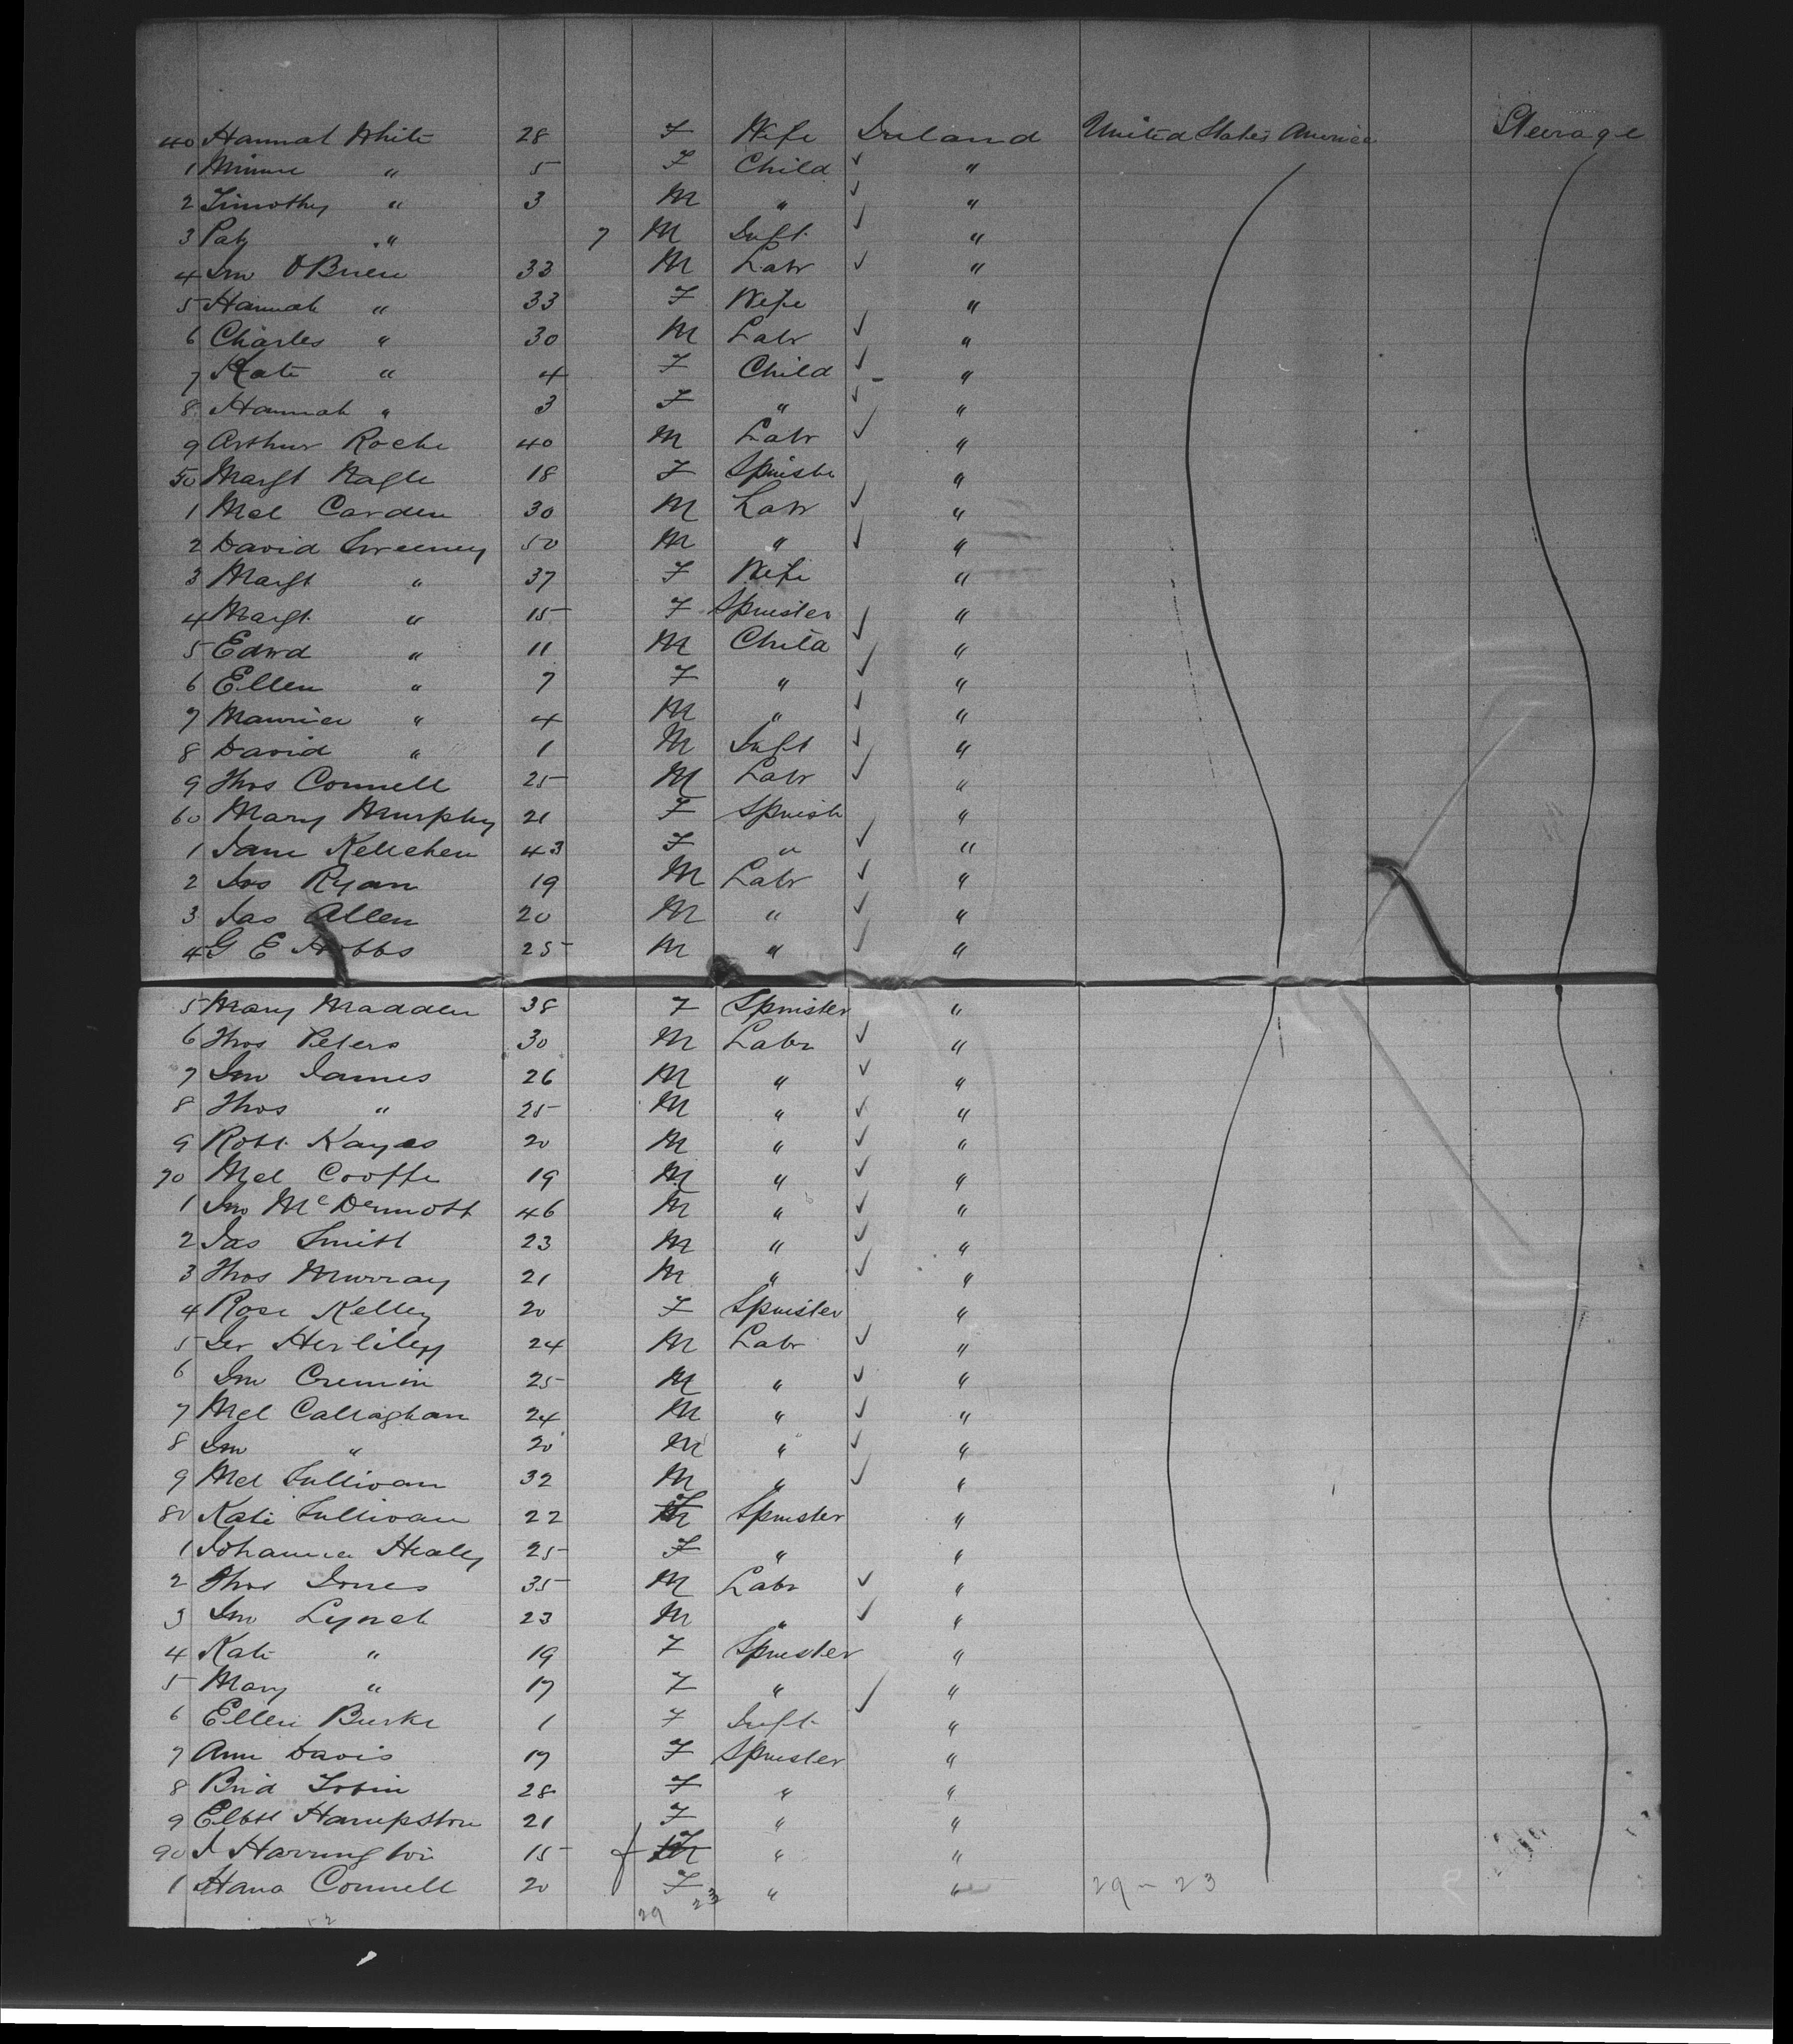 40 Hannah White 28 F Wife Ireland United States America Steerage
1 Minnie " 5 F Child ✓ "
2 Timothy " 3 M " ✓ "
3 Pat " 7 M Inft ✓ "
4 Jno O'Brien 33 M Labr ✓ "
5 Hannah " 33 F Wife "
6 Charles " 30 M Labr ✓ "
7 Kate " 4 F Child ✓ "
8 Hannah " 3 F " ✓ "
9 Arthur Roche 40 M Labr ✓ "
50 Margt Nagle 18 F Spinster "
1 Mcl Carden 30 M Labr ✓ "
2 David Sweeney 50 M " ✓ "
3 Margt " 37 F Wife "
4 Margt " 15 F Spinster ✓ "
5 Edwd " 11 M Child ✓ "
6 Ellen " 7 F " ✓ "
7 Maurice " 4 M " ✓ "
8 David " 1 M Inft ✓ "
9 Thos Connell 25 M Labr ✓ "
60 Mary Murphy 21 F Spinst "
1 Jane Kelleher 43 F " ✓ "
2 Jas Ryan 19 M Labr ✓ "
3 Jas Allen 20 M " ✓ "
4 G E Hobbs 25 M " ✓ "
5 Mary Madden 38 F Spinster "
6 Thos Peters 30 M Labr ✓ "
7 Jno James 26 M " ✓ "
8 Thos " 25 M " ✓ "
9 Robt Hayes 20 M " ✓ "
70 Mcl 19 M " ✓ "
1 Jno McDermott 46 M " ✓ "
2 Jas Smith 23 M " ✓ "
3 Thos Murray 21 M " ✓ "
4 Rose Kelly 20 F Spinster "
5 Jer Herlihy 24 M Labr ✓ "
6 Jno Cremin 25 M " ✓ "
7 Mcl Callaghan 24 M " ✓ "
8 Jno " 20 M " ✓ "
9 Mcl Sullivan 32 M " ✓ "
80 Kate Sullivan 22 F Spinster "
1 Johanna Healy 25 F " "
2 Thos Jones 35 M Labr ✓ "
3 Jno Lynch 23 M " ✓ "
4 Kate " 19 F Spinster "
5 Mary " 17 F " ✓ "
6 Ellen Burke 1 F Inft "
7 Ann Davis 17 F Spinster "
8 Brid Tobin 28 F " "
9 Elbth Hampston 21 F " "
90 J Harrington 15 F " "
1 Hana Connell 20 F " " 29 - 23
29 23